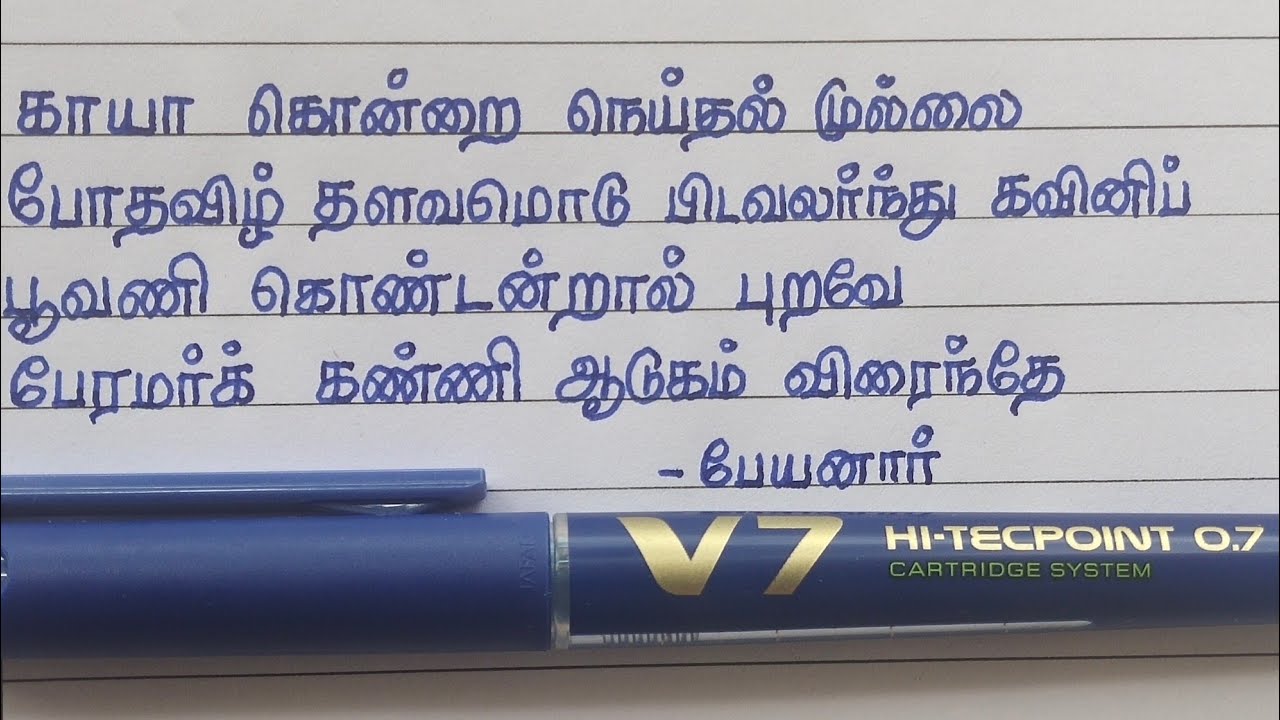 காயா கொன்றை நெய்தல் முல்லை
போதவிழ் தளவமொடு பிடவலர்ந்து கவினிப்
பூவணி கொண்டன்றால் புறவே
பேரமர்க் கண்ணி ஆடுகம் விரைந்தே
- பேயனார்
V7 HI-TECPOINT 0.7
CARTRIDGE SYSTEM